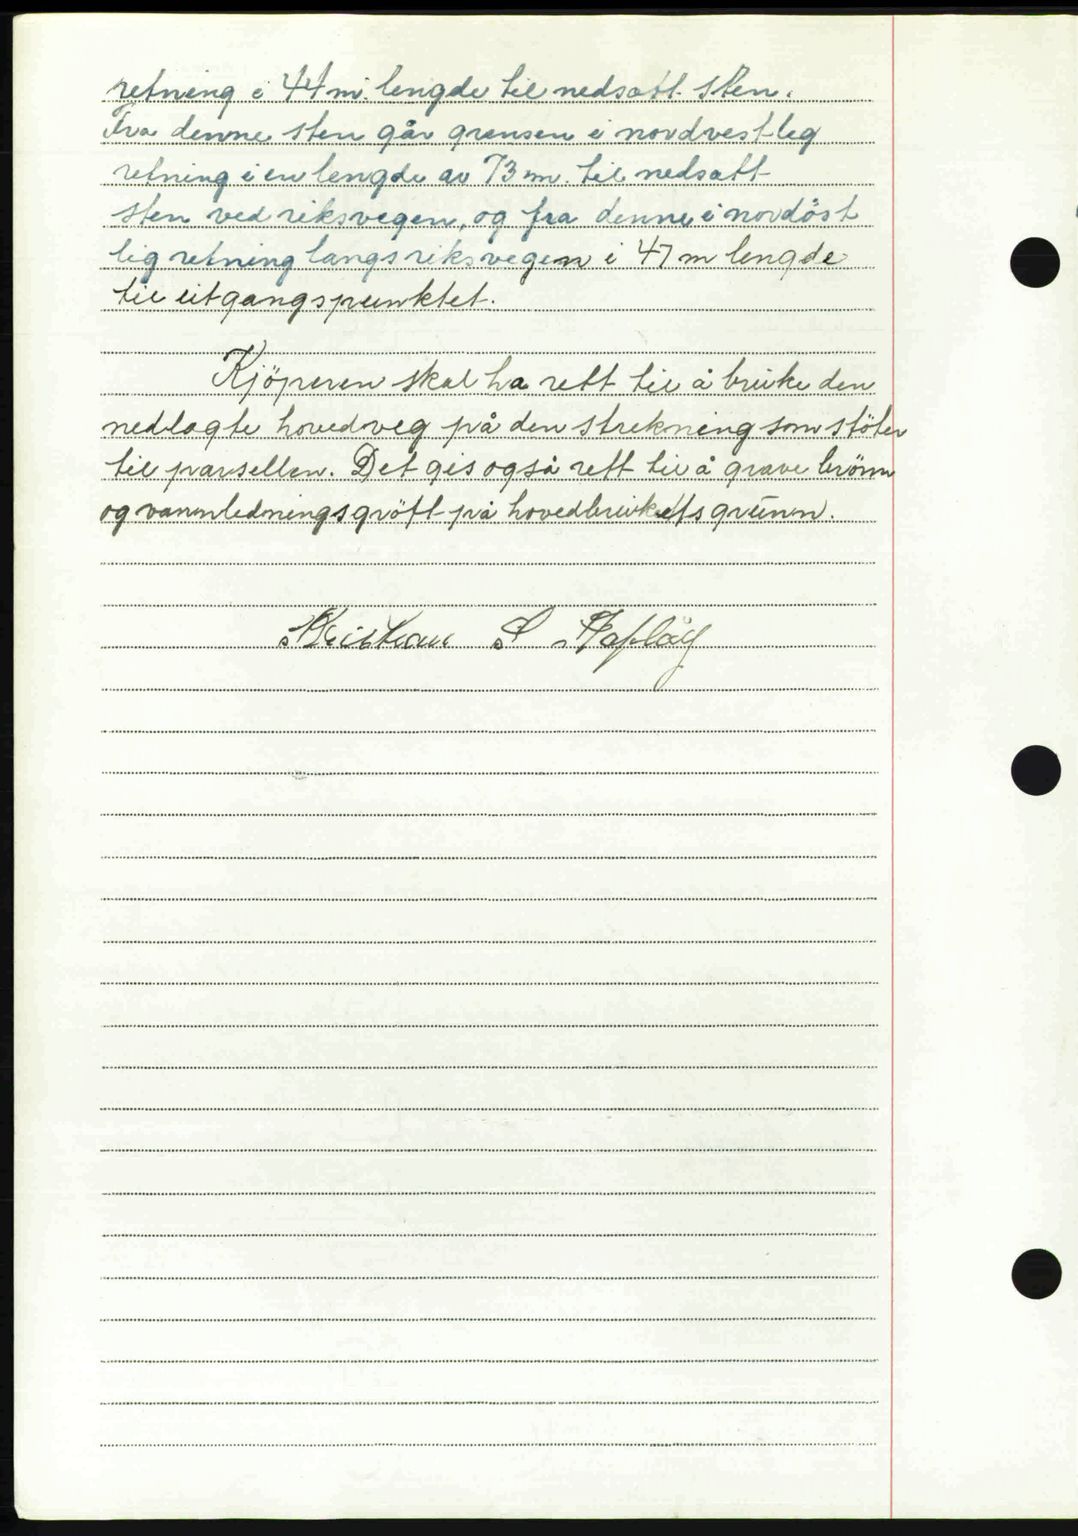 retning i 44 m. lengde til nedsatt sten.
Fra denne sten går grensen i nordvestleg
retning i en lengde av 73 m. til nedsatt
sten ved riksvegen, og fra denne i nordöst
lig retning langs riksvegen i 47 m lengde
til utgangspunktet.
Kjöperen skal ha rett til å bruke den
nedlagte hovedveg på den strekning som stöter
til parsellen. Det gis også rett til å grave brönn
og vannledningsgröft på hovedbrukets grunn.
Kristian S